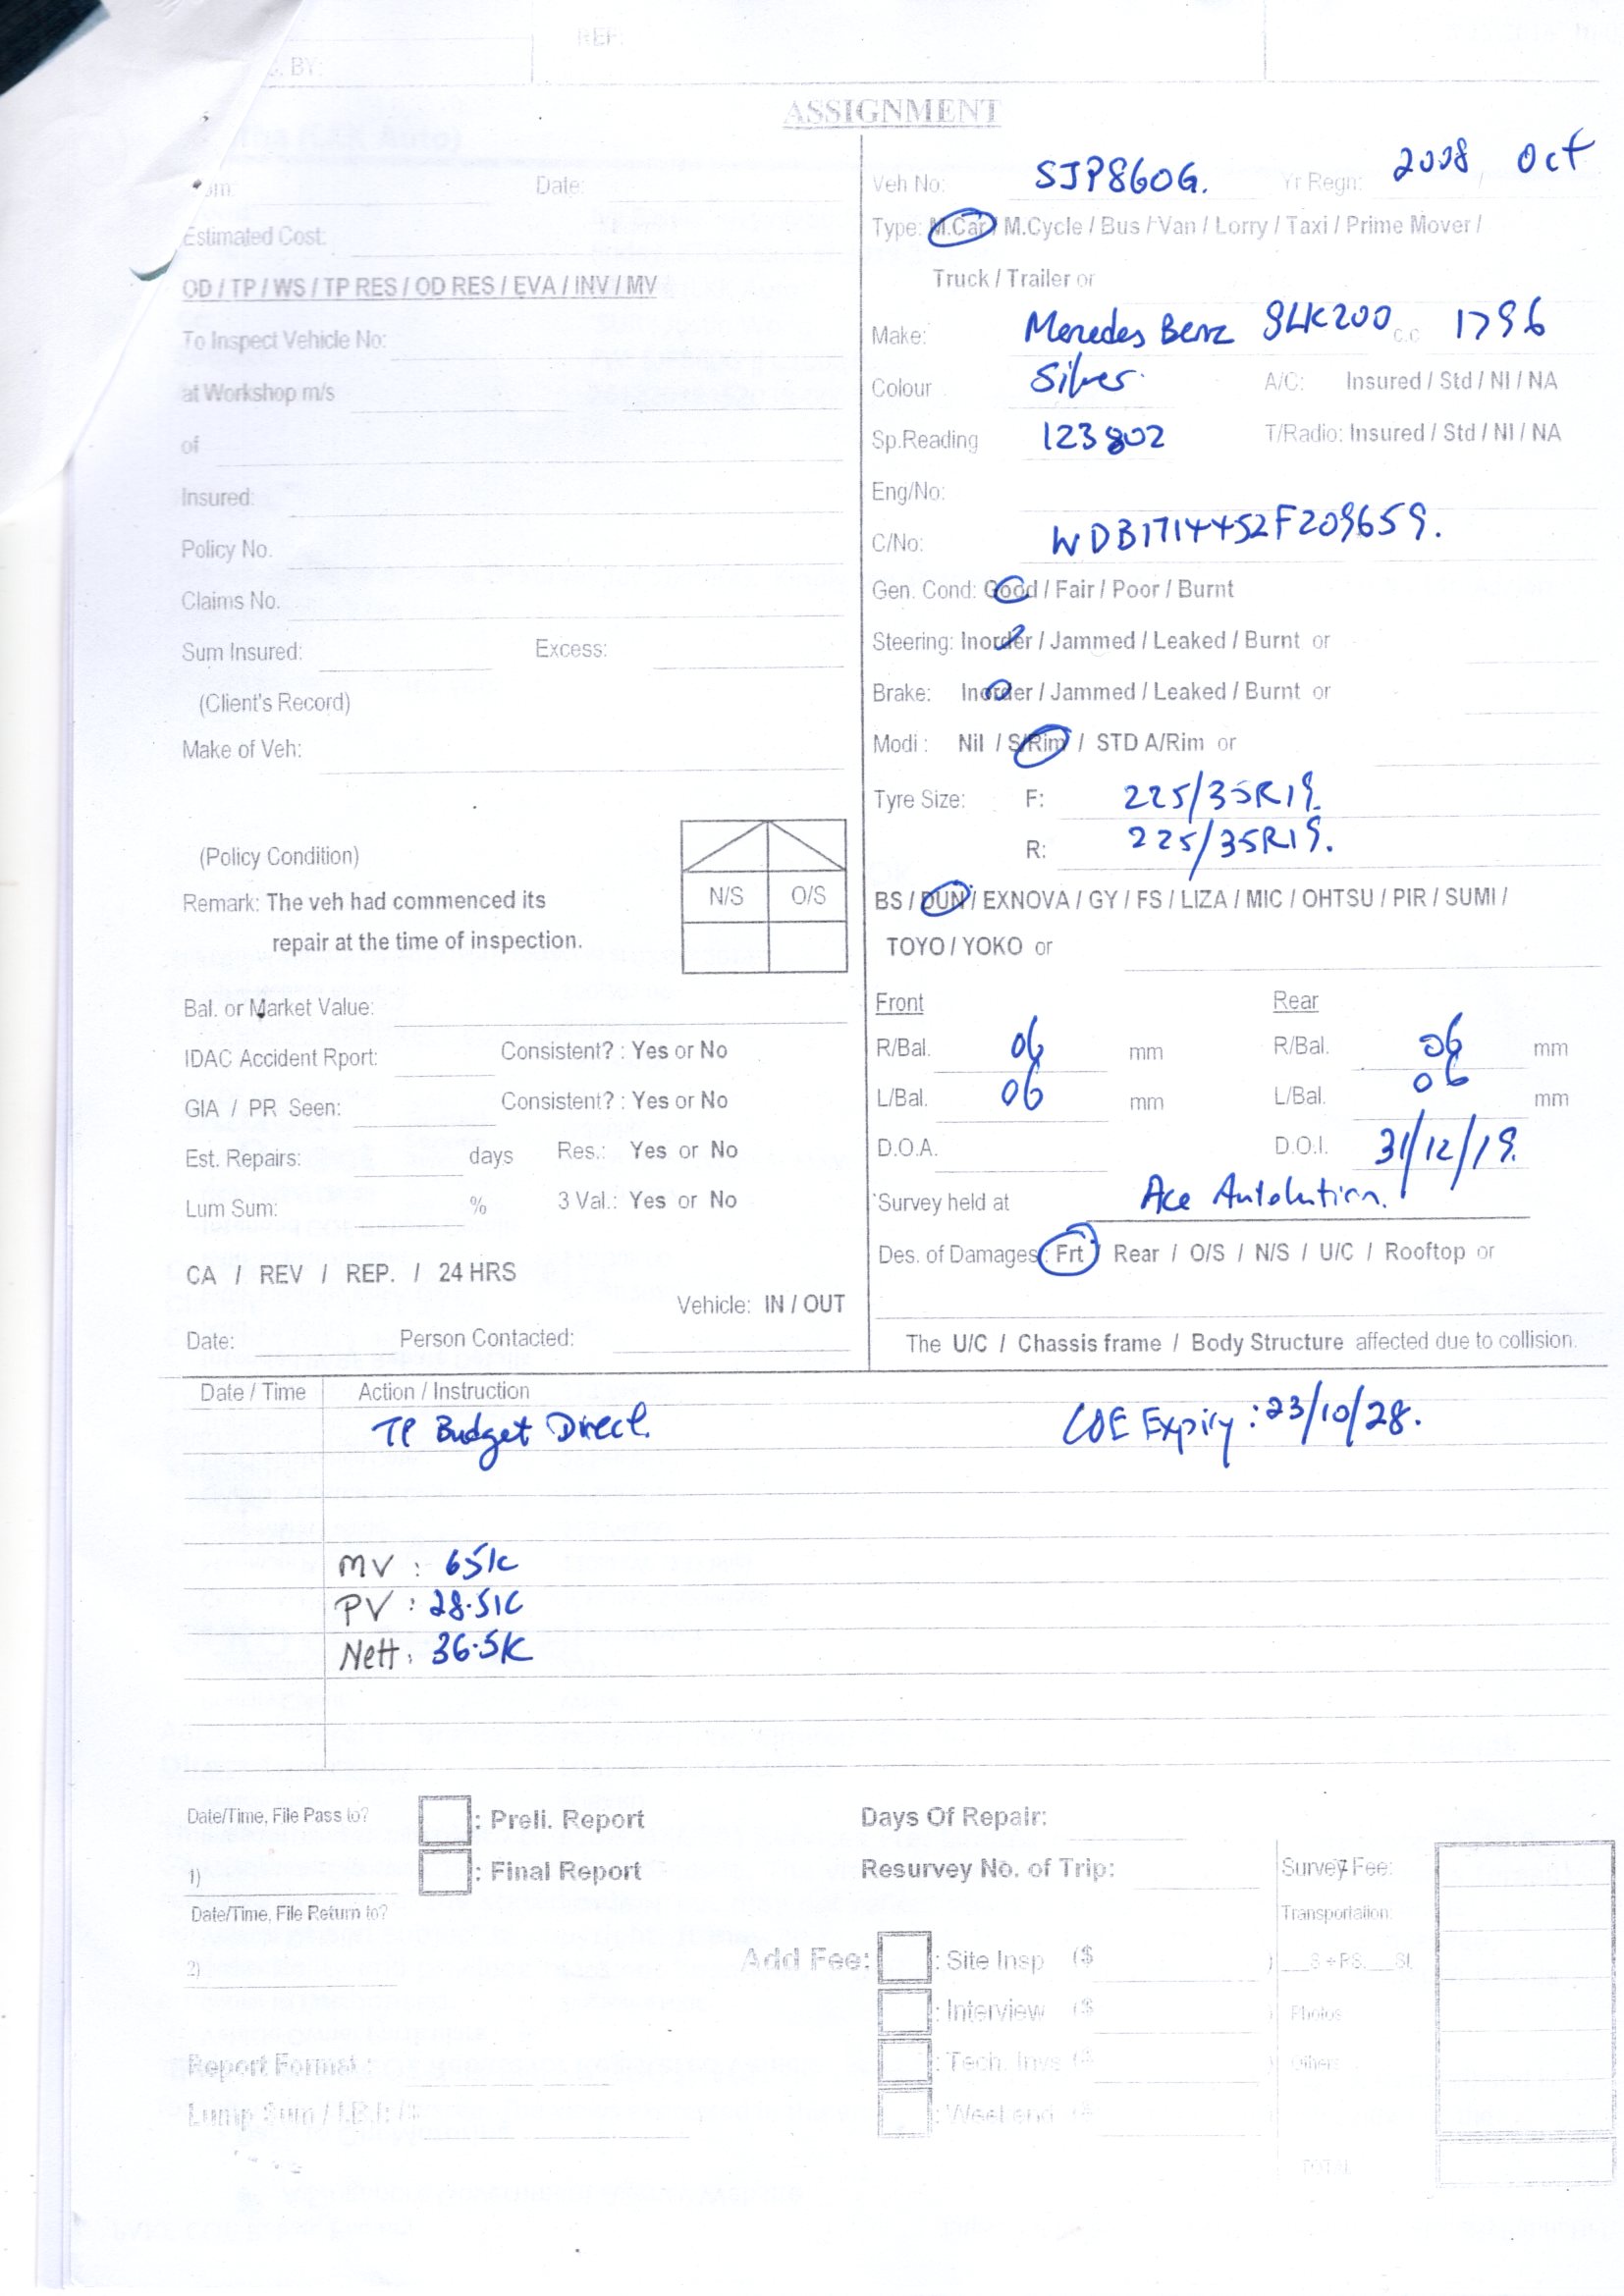 REF:
BY:
ASSIGNMENT
Date:
Estimated Cost:
OD / TP / WS / TP RES / OD RES / EVA / INV / MV
To Inspect Vehicle No:
at Workshop m/s
of
Insured:
Policy No.
Claims No.
Sum Insured: Excess:
(Client's Record)
Make of Veh:
(Policy Condition)
N/S O/S
Remark: The veh had commenced its
repair at the time of inspection.
Bal. or Market Value:
IDAC Accident Rport: Consistent? : Yes or No
GIA / PR Seen: Consistent? : Yes or No
Est. Repairs: days Res.: Yes or No
Lum Sum: % 3 Val.: Yes or No
CA / REV / REP. / 24 HRS
Vehicle: IN / OUT
Date: Person Contacted:
Veh No: SJP860G. Yr Regn: 2008 / Oct
Type: M.Car / M.Cycle / Bus / Van / Lorry / Taxi / Prime Mover /
Truck / Trailer or
Make: Meredes Benz SLK200 c.c 1796
Colour Silver. A/C: Insured / Std / NI / NA
Sp.Reading 123802 T/Radio: Insured / Std / NI / NA
Eng/No:
C/No: WDB1714452F209659.
Gen. Cond: Good / Fair / Poor / Burnt
Steering: Inorder / Jammed / Leaked / Burnt or
Brake: Inorder / Jammed / Leaked / Burnt or
Modi : Nil / S/Rim / STD A/Rim or
Tyre Size: F: 225/35R19.
R: 225/35R19.
BS / DUN / EXNOVA / GY / FS / LIZA / MIC / OHTSU / PIR / SUMI /
TOYO / YOKO or
Front Rear
R/Bal. 06 mm R/Bal. 06 mm
L/Bal. 06 mm L/Bal. 06 mm
D.O.A. D.O.I. 31/12/19.
Survey held at Ace Autolution.
Des. of Damages: Frt / Rear / O/S / N/S / U/C / Rooftop or
The U/C / Chassis frame / Body Structure affected due to collision.
Date / Time Action / Instruction
TP Budget Direct. COE Expiry : 23/10/28.
MV : 65k
PV : 28.5k
Nett : 36.5k
Date/Time, File Pass to? : Preli. Report Days Of Repair:
1) : Final Report Resurvey No. of Trip: Survey Fee:
Date/Time, File Return to? Transportation:
2) Add Fee: : Site Insp ($ ) __S + RS.__SI.
: Interview ($ ) Photos
Report Format : : Tech. Invs ($ ) Others
Lump Sum / I.B.I: : Weekend ($
TOTAL